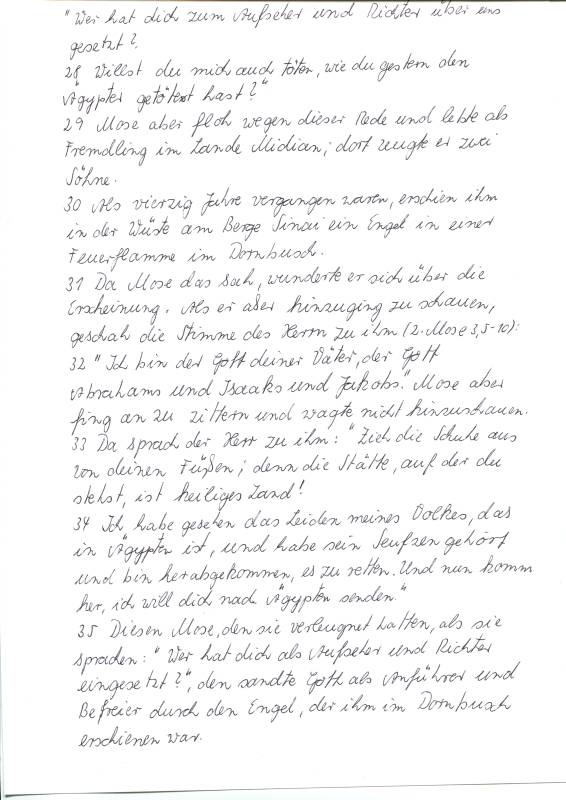 "Wer hat dich zum Aufseher und Richter über uns
gesetzt?
28 Willst du mich auch töten, wie du gestern den
Ägypter getötet hast?"
29 Mose aber floh wegen dieser Rede und lebte als
Fremdling im Lande Midian; dort zeugte er zwei
Söhne.
30 Als vierzig Jahre vergangen waren, erschien ihm
in der Wüste am Berge Sinai ein Engel in einer
Feuerflamme im Dornbusch.
31 Da Mose das sah, wunderte er sich über die
Erscheinung. Als er aber hinzuging zu schauen,
geschah die Stimme des Herrn zu ihm (2. Mose 3,5-10):
32 "Ich bin der Gott deiner Väter, der Gott
Abrahams und Isaaks und Jakobs." Mose aber
fing an zu zittern und wagte nicht hinzuschauen.
33 Da sprach der Herr zu ihm: "Zieh die Schuhe aus
von deinen Füßen; denn die Stätte, auf der du
stehst, ist heiliges Land!
34 Ich habe gesehen das Leiden meines Volkes, das
in Ägypten ist, und habe sein Seufzen gehört
und bin herabgekommen, es zu retten. Und nun komm
her, ich will dich nach Ägypten senden."
35 Diesen Mose, den sie verleugnet hatten, als sie
sprachen: "Wer hat dich als Aufseher und Richter
eingesetzt?", den sandte Gott als Anführer und
Befreier durch den Engel, der ihm im Dornbusch
erschienen war.